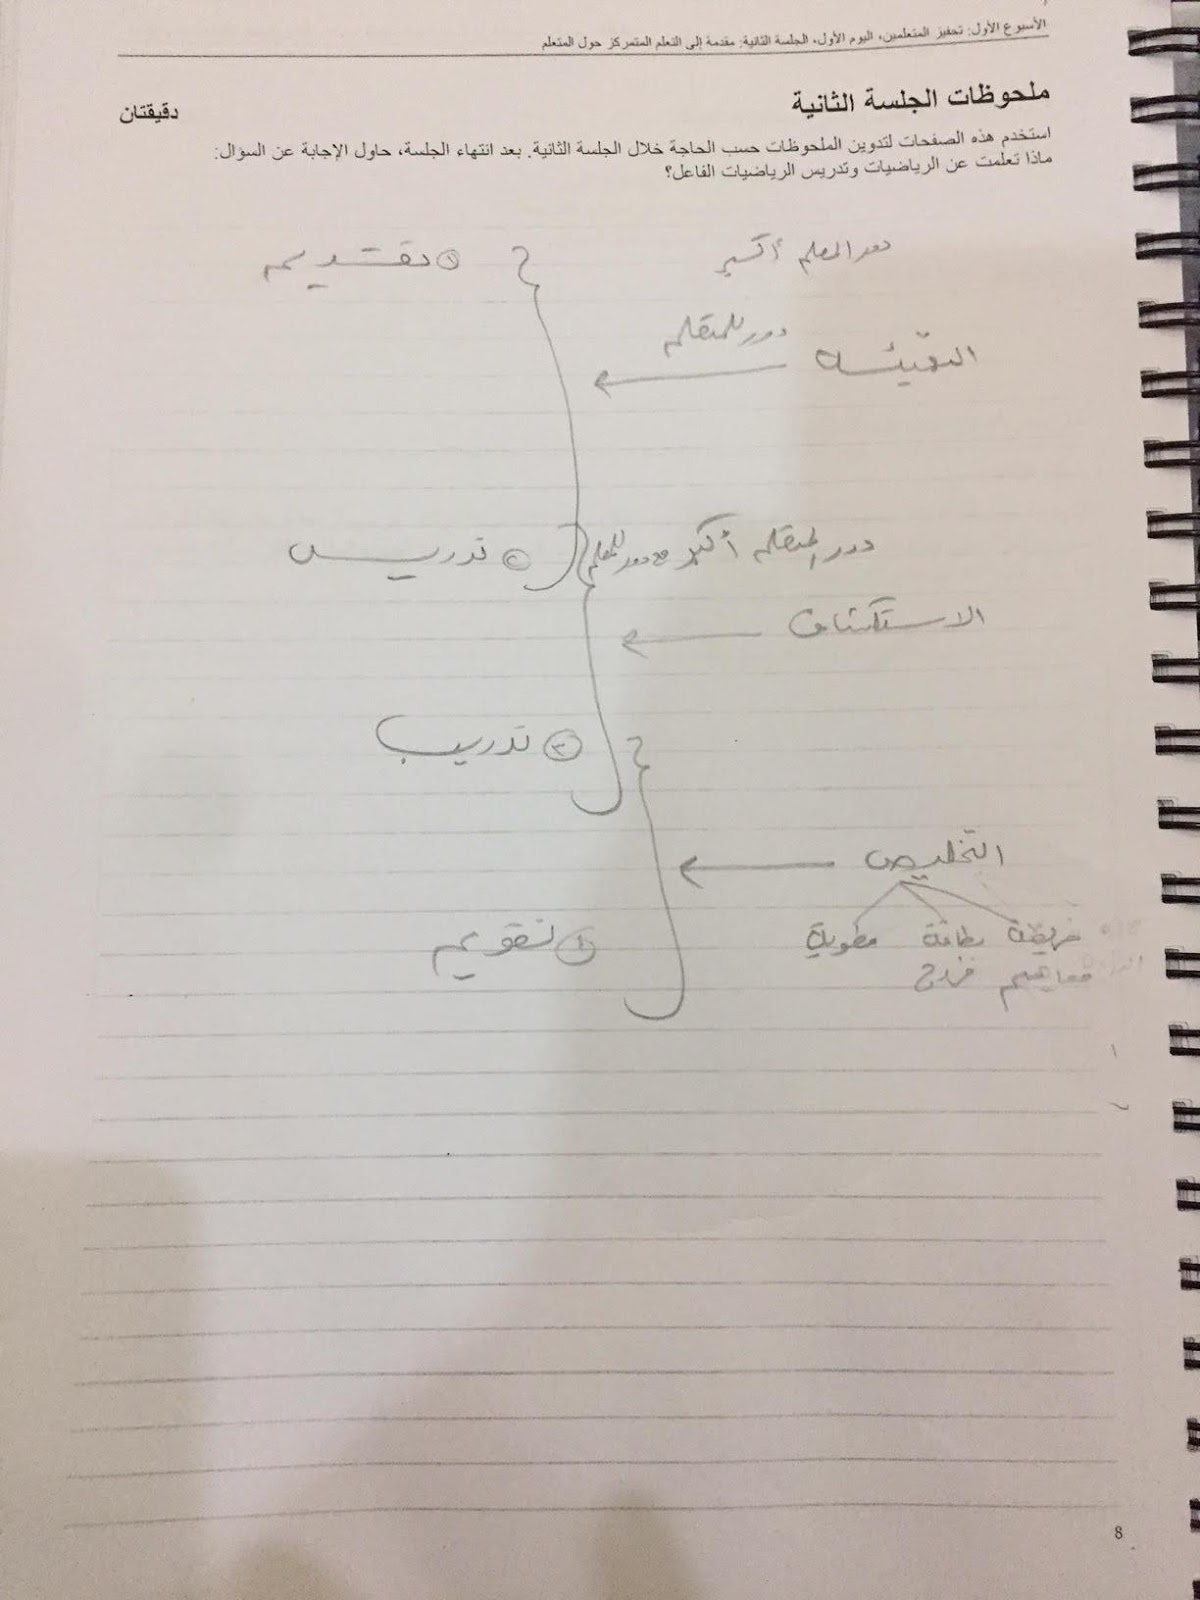 الأسبوع الأول: تحفيز المتعلمين، اليوم الأول، الجلسة الثانية: مقدمة إلى التعلم المتمركز حول المتعلم
ملحوظات الجلسة الثانية
دقيقتان
استخدم هذه الصفحات لتدوين الملحوظات حسب الحاجة خلال الجلسة الثانية. بعد انتهاء الجلسة، حاول الإجابة عن السؤال:
ماذا تعلمت عن الرياضيات وتدريس الرياضيات الفاعل؟
دور المعلم أكبر
١ تقديم
دور للمتعلم
التهيئة
دور المتعلم أكبر مع دور للمعلم
٢ تدريس
الاستكشاف
٣ تدريب
التخليص
خريطة بطاقة مطوية
٤ تقويم
مفاهيم خروج
8